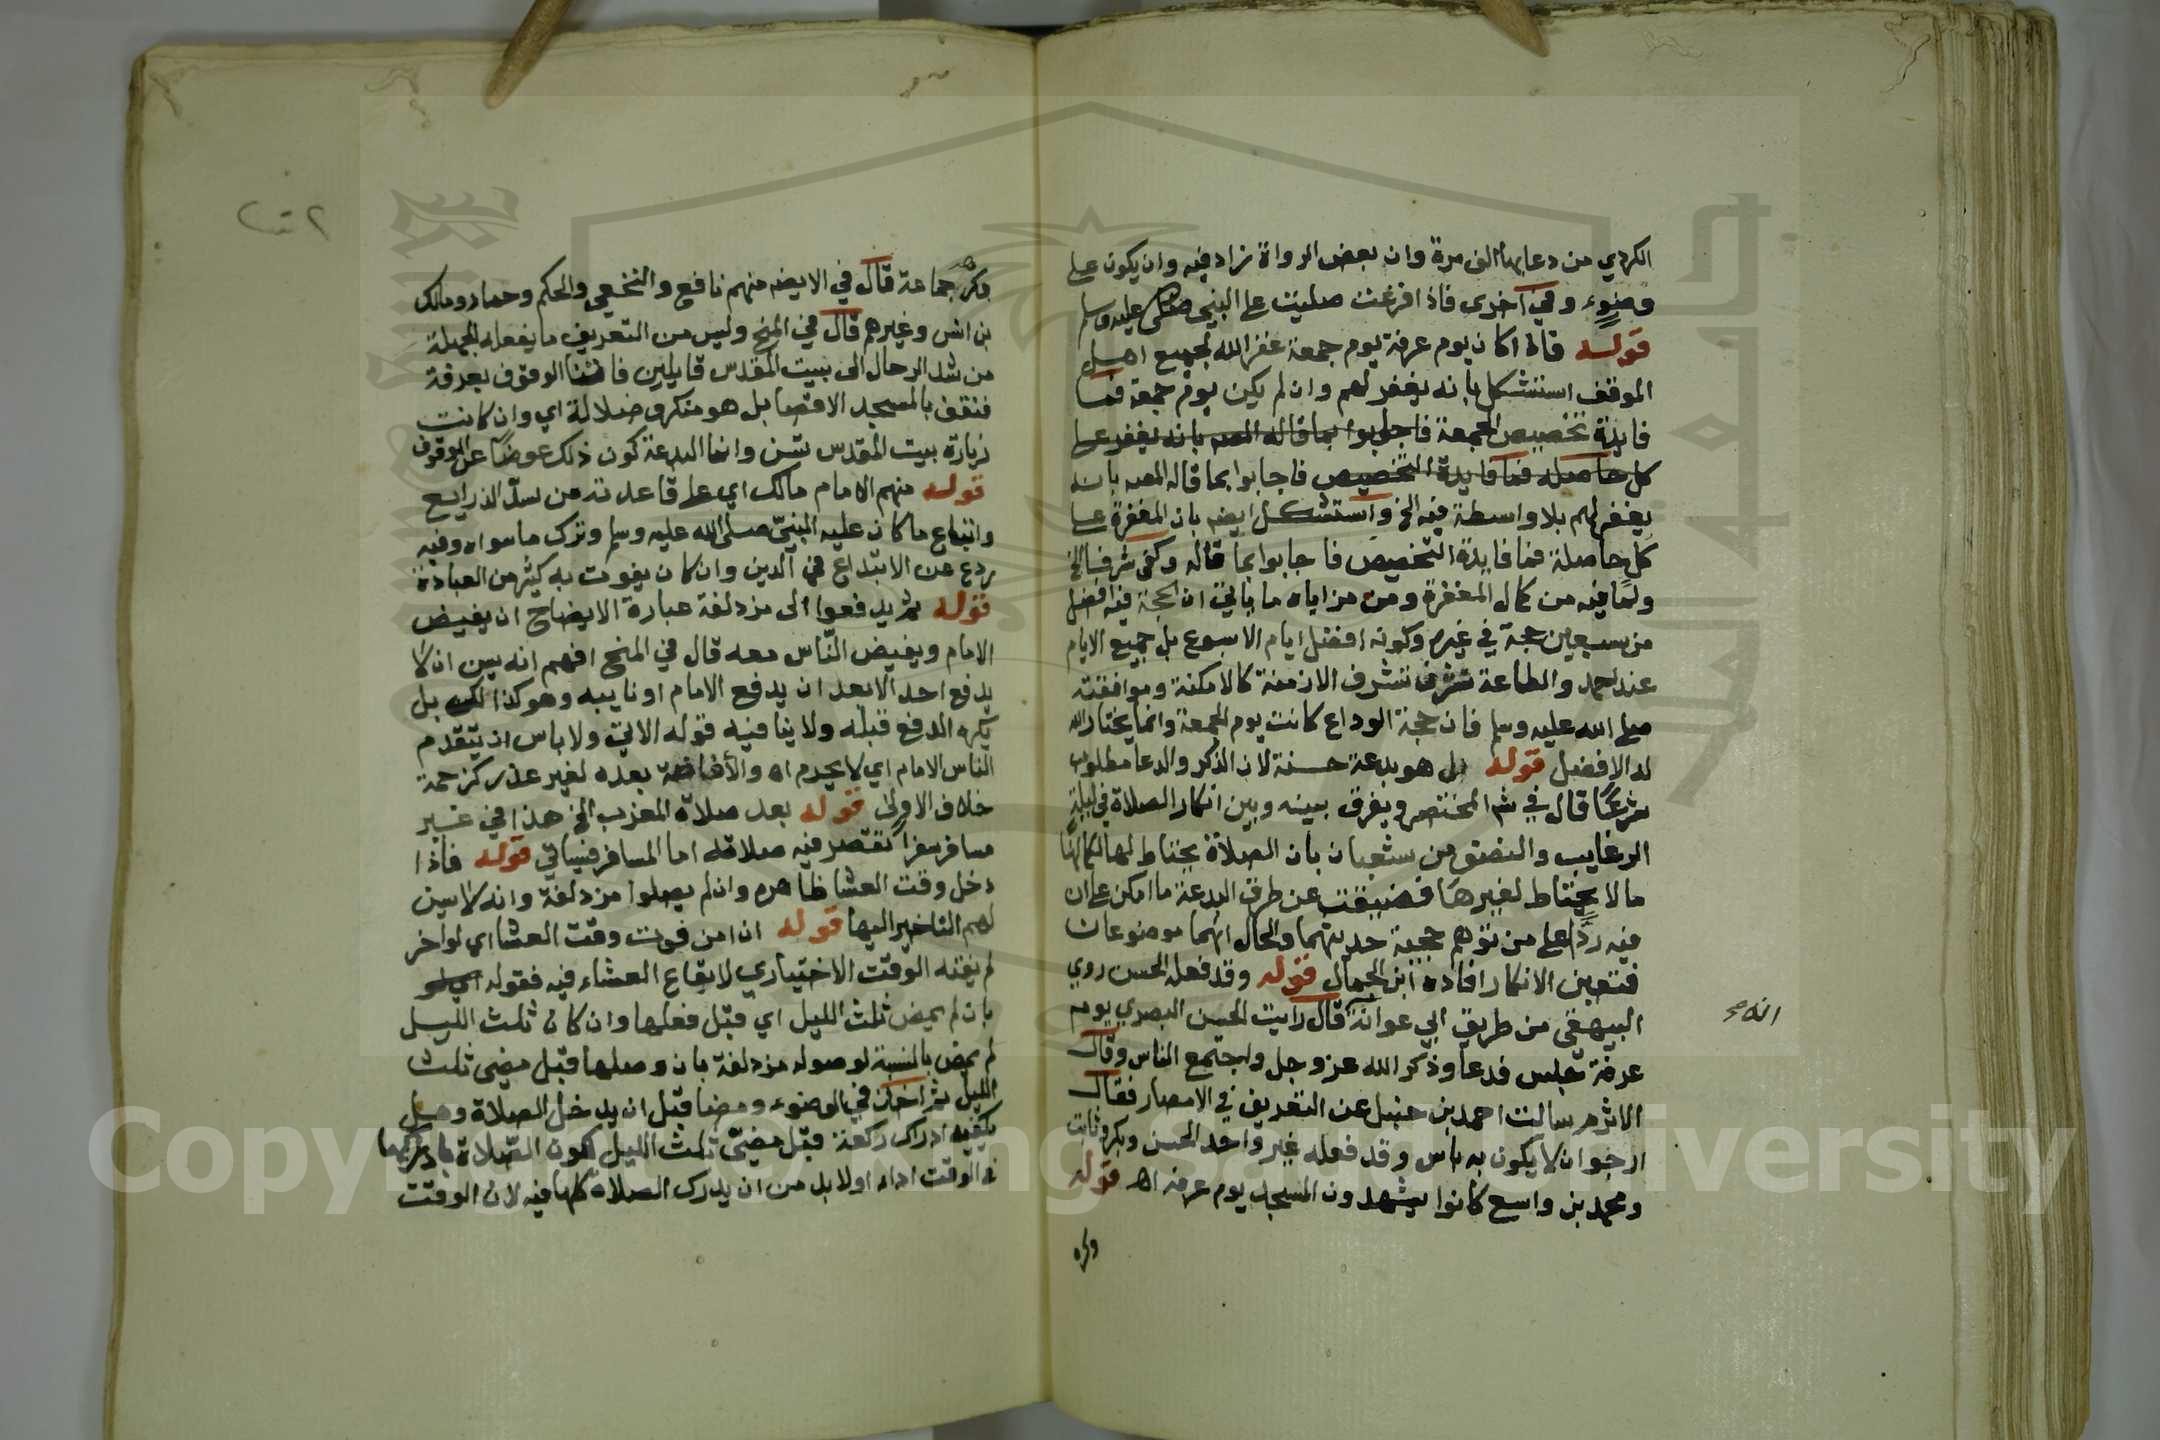 الكردي من دعا بها الف مرة وان بعض الرواة زاد فيه وان يكون على
وضوء وفي اخرى فاذا فرغت صليت على النبي صلى الله عليه وسلم
قوله فاذا كان يوم عرفة يوم جمعة غفر الله لجميع اهل
الموقف استشكل بانه يغفر لهم وان لم يكن يوم جمعة فما
فايدة تخصيص الجمعة فاجابوا بما قاله المص بانه يغفر على
كل حاصله فما فايدة التخصيص فاجابوا بما قاله المص بانه
يغفر لهم بلا واسطة فيه الخ واستشكل ايض بان المغفرة على
كل حاصلة فما فايدة التخصيص فاجابوا بما قاله وكفى شرفا الخ
ولما فيه من كمال المغفرة ومن مزاياه ما ياتي ان الحجة فيه افضل
من سبعين حجة في غيره وكونه افضل ايام الاسبوع بل جميع الايام
عند احمد والطاعة تشرف بشرف الازمنة كالامكنة وموافقته
صلى الله عليه وسلم فان حجة الوداع كانت يوم الجمعة وانما يختار الله
له الافضل قوله بل هو بدعة حسنة لان الذكر والدعا مطلوب
شرعًا قال في ش المختصر ويفرق بينه وبين انكار الصلاة في ليلة
الرغايب والنصف من شعبان بان الصلاة يحتاط لها لكمالها
ما لا يحتاط لغيرها فضيقت عن طرق البدعة ما امكن على ان
فيه ردًّا على من توهم حجية حديثهما والحال انهما موضوعان
فتعين الانكار افاده ابن الجمال قوله وقد فعله الحسن روي
البيهقي من طريق ابي عوانة قال رايت الحسن البصري يوم
عرفة جلس فدعا وذكر الله عز وجل واجتمع الناس وقال
الاثرم سالت احمد بن حنبل عن التعريف في الامصار فقال
ارجو ان لا يكون به باس وقد فعله غير واحد الحسن وبكر وثابت
ومحمد بن واسع كانوا يشهدون المسجد يوم عرفه اه قوله
وكره
وكره جماعة قال في الايض منهم نافع والنخعي والحكم وحماد ومالك
بن انس وغيرهم قال في المنح وليس من التعريف ما يفعله الجهلة
من شد الرحال الى بيت المقدس قايلين فاتنا الوقوف بعرفة
فنقف بالمسجد الاقصا بل هو منكر وضلالة اي وان كانت
زيارة بيت المقدس تسن وانما البدعة كون ذلك عوضًا عن الوقوف
قوله منهم الامام مالك اي على قاعدته من سدّ الذرايع
واتباع ما كان عليه النبيّ صلى الله عليه وسلم وترك ما سواه وفيه
ردع عن الابتداع في الدين وان كان يفوت به كثير من العبادة
قوله ثم يدفعوا الى مزدلفة عبارة الايضاح ان يفيض
الامام ويفيض الناس معه قال في المنح افهم انه يسن ان لا
يدفع احد الا بعد ان يدفع الامام او نايبه وهو كذالك بل
يكره الدفع قبله ولا ينافيه قوله الاتي ولا باس ان يتقدم
الناس الامام اي لا يحرم اه والأفاضة بعده لغير عذر كزحمة
خلاف الاولى قوله بعد صلاة المغرب الخ هذا في غير
مسافر سفرًا تقصر فيه صلاته اما المسافر فسياتي قوله فاذا
دخل وقت العشا ظاهره وان لم يصلوا مزدلفة وانه لا يسن
لهم التاخير اليها قوله ان امن فوت وقت العشا اي لو اخر
لم يفته الوقت الاختياري لايقاع العشاء فيه فقوله اي لو
بان لم يمض ثلث الليل اي قبل فعلها وان كان ثلث الليل
لم يمض بالنسبة لوصوله مزدلفة بان وصلها قبل مضى ثلث
الليل ثم اخذ في الوضوء ومضا قبل ان يدخل الصلاة وهل
يكفيه ادراك ركعة قبل مضيّ ثلث الليل لكون الصّلاة
في الوقت اداء اولا بل من ان يدرك الصلاة كلها فيه لان الوقت
Copyright © King Saud University